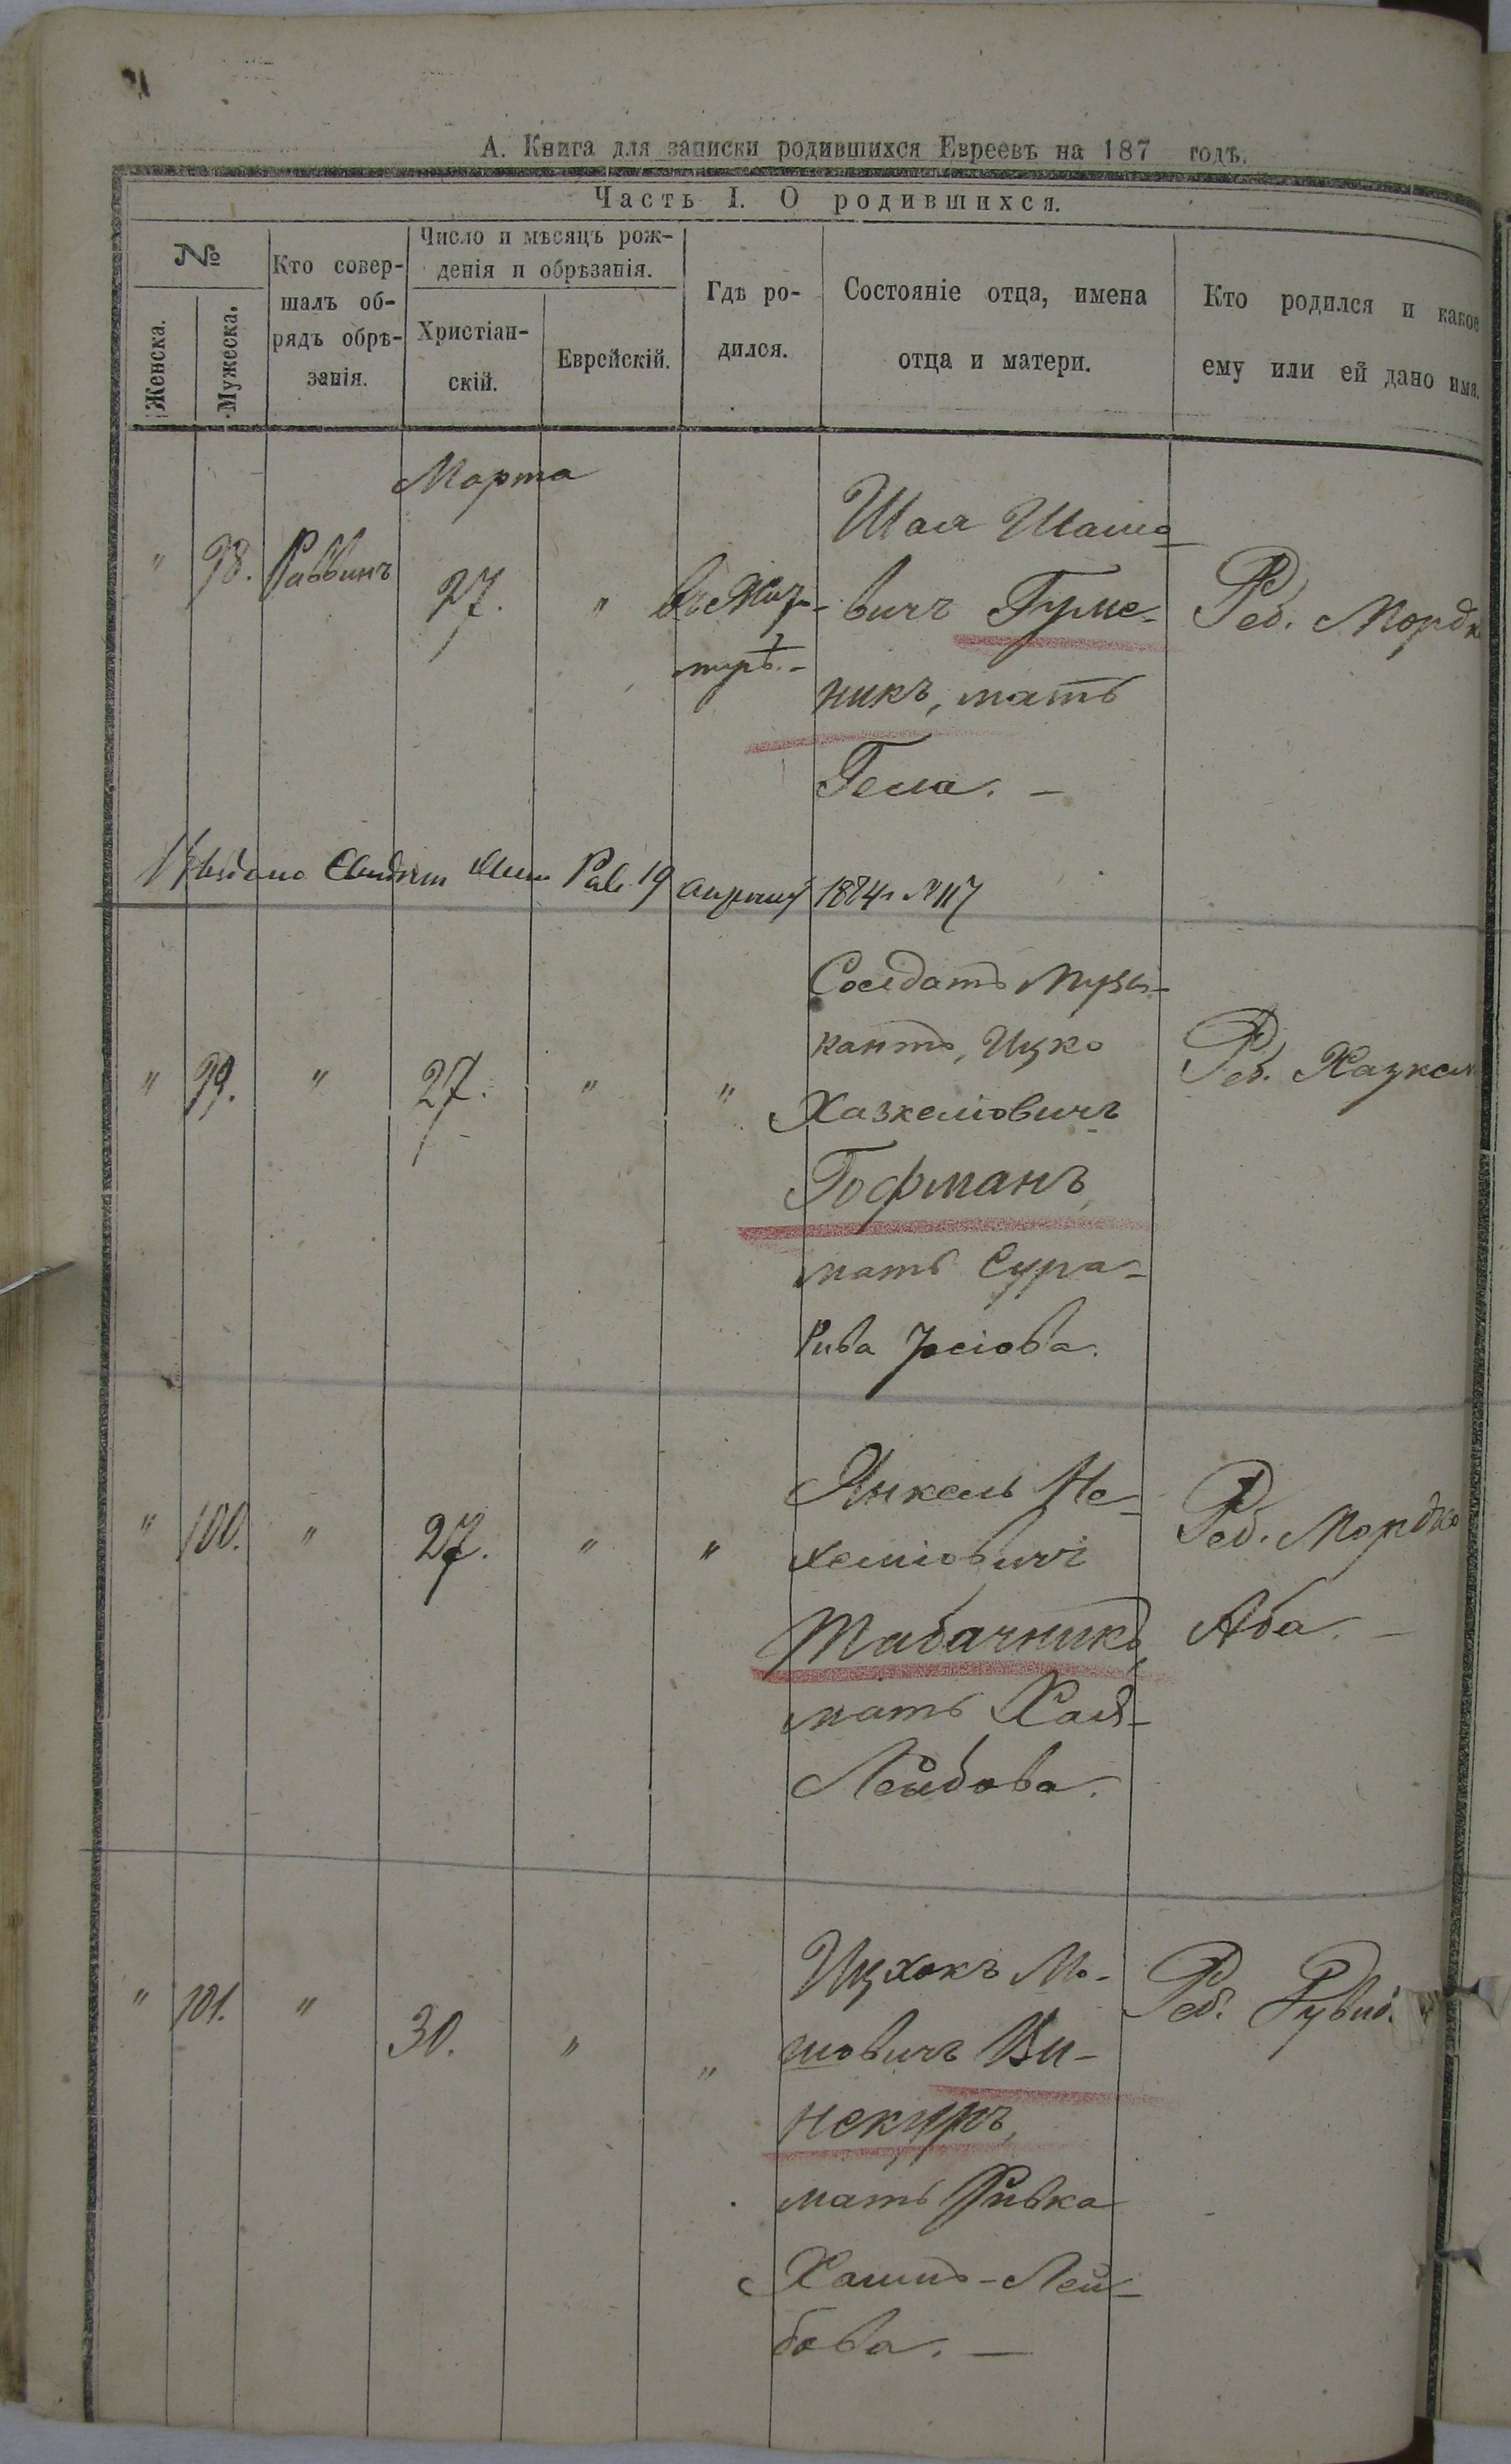 А. Книга для записки родившихся Евреевъ на 187 годъ.
Часть I. О родившихся.
№
Женска.
Мужеска.
Кто совер-
шалъ об-
рядъ обрѣ-
занія.
Число и мѣсяцъ рож-
денія и обрѣзанія.
Христіан-
скій.
Еврейскій.
Гдѣ ро-
дился.
Состояніе отца, имена
отца и матери.
Кто родился и какое
ему или ей дано имя.
Марта
" 98. Раввинъ 27. "
Шая
вичъ Гуме-
никъ, мать
Геля. –
Реб. Мордк
19 1884 г. № 117
" 99. " 27. " "
Солдатъ музы-
кантъ, Ицко
Хазкелiовичъ
Гофманъ,
мать Сура-
Рива
Реб. Хазкел
" 100. " 27. " "
Янкель Не-
хемiовичъ
Табачникъ,
мать Хая-
Лейбова.
Реб. Мордко
Аба. –
" 101. " 30. " "
Ицхокъ Мо-
шовичъ Ви-
некуръ,
мать Ривка
Хаимъ-Лей-
бова. –
Реб. Рувин